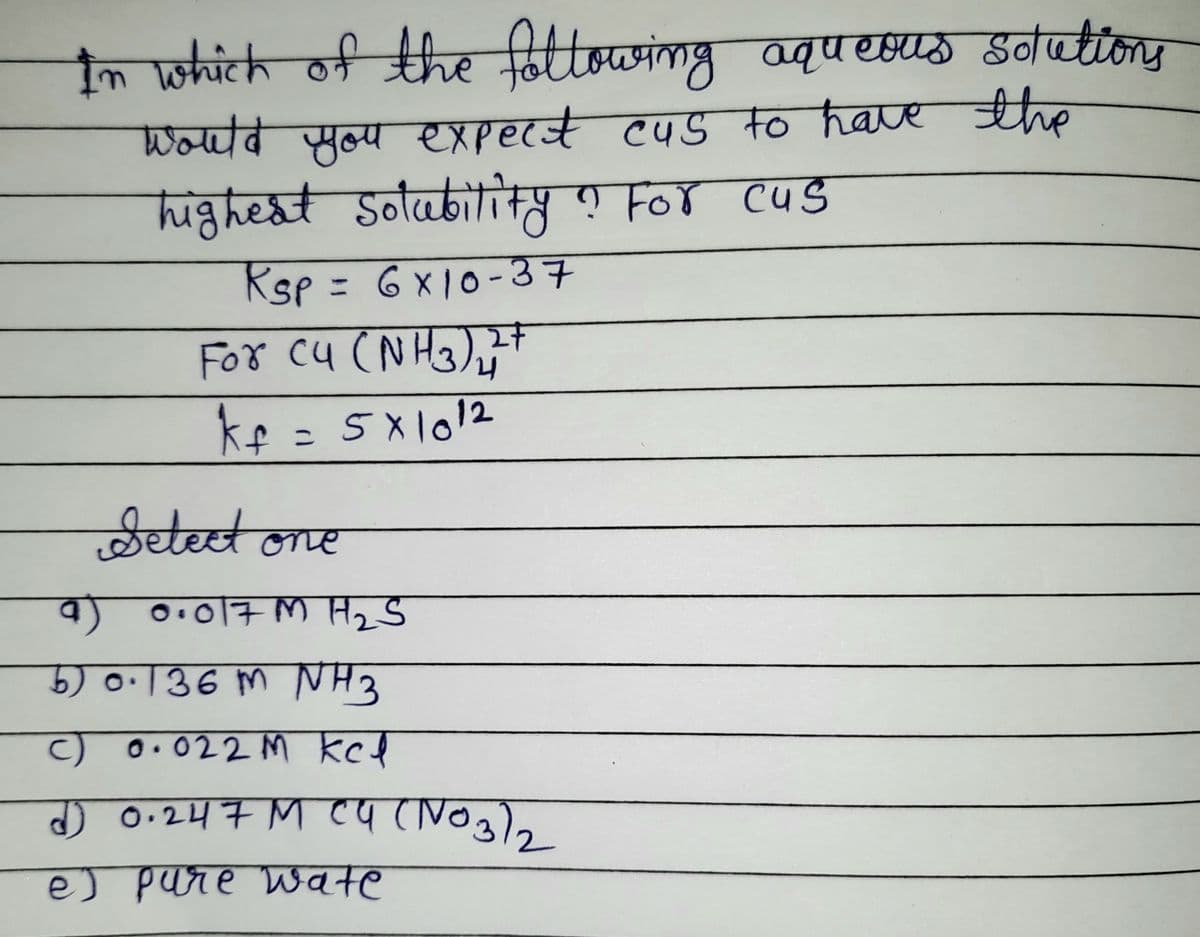 In which of the following aqueous solutions
would you expect cus to have the
highest solubility ? For cus
Ksp = 6x10-37
For Cu (NH3)4 2+
kf = 5x10 12
Select one
a) 0.017 M H2S
b) 0.136 m NH3
c) 0.022 M kcl
d) 0.247 M Cu (NO3)2
e) pure wate